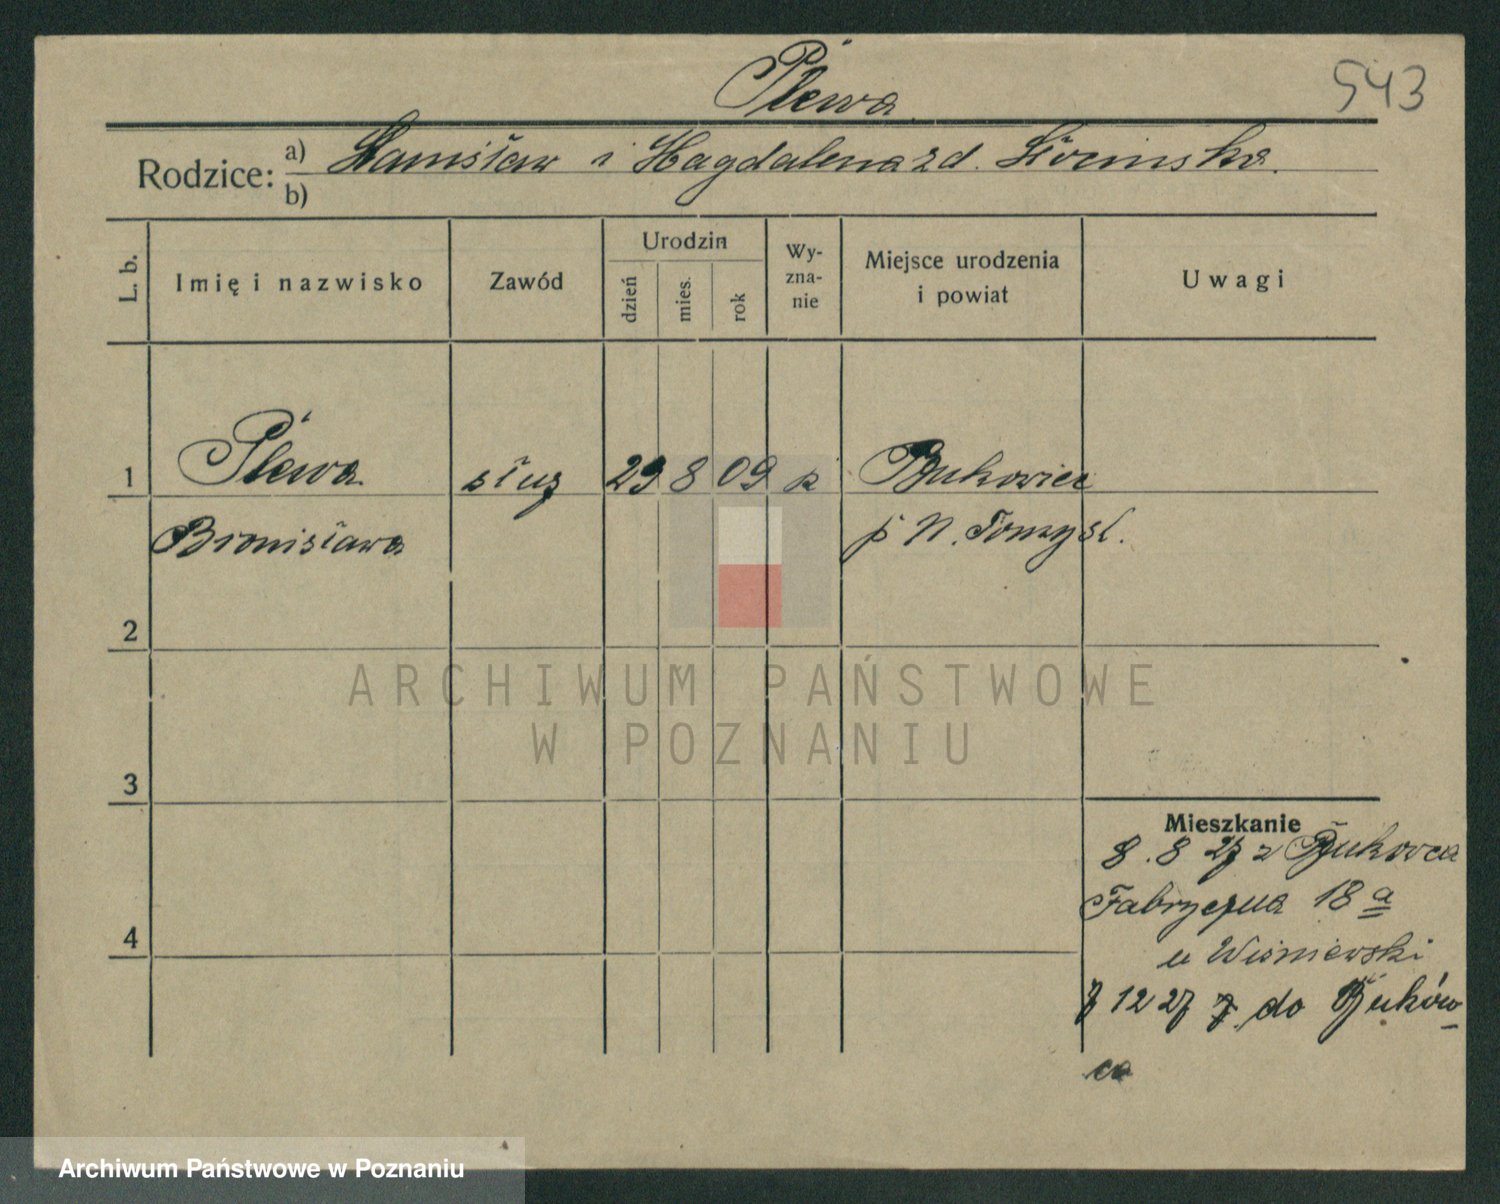 Plewa
543
Rodzice: a) Stanisław i Magdalena zd.
b)
L. b.
Imię i nazwisko
Zawód
Urodzin
dzień
mies.
rok
Wy-
zna-
nie
Miejsce urodzenia
i powiat
Uwagi
1 Plewa służ 29 8 09 k Bukowiec
Bronisława p N. Tomyśl.
2
3
4
Mieszkanie
8.8 27 z Bukowca
Fabryczna 18 a
u Wiśniewski
7 12 27 do Buków-
ca
ARCHIWUM PAŃSTWOWE
W POZNANIU
Archiwum Państwowe w Poznaniu